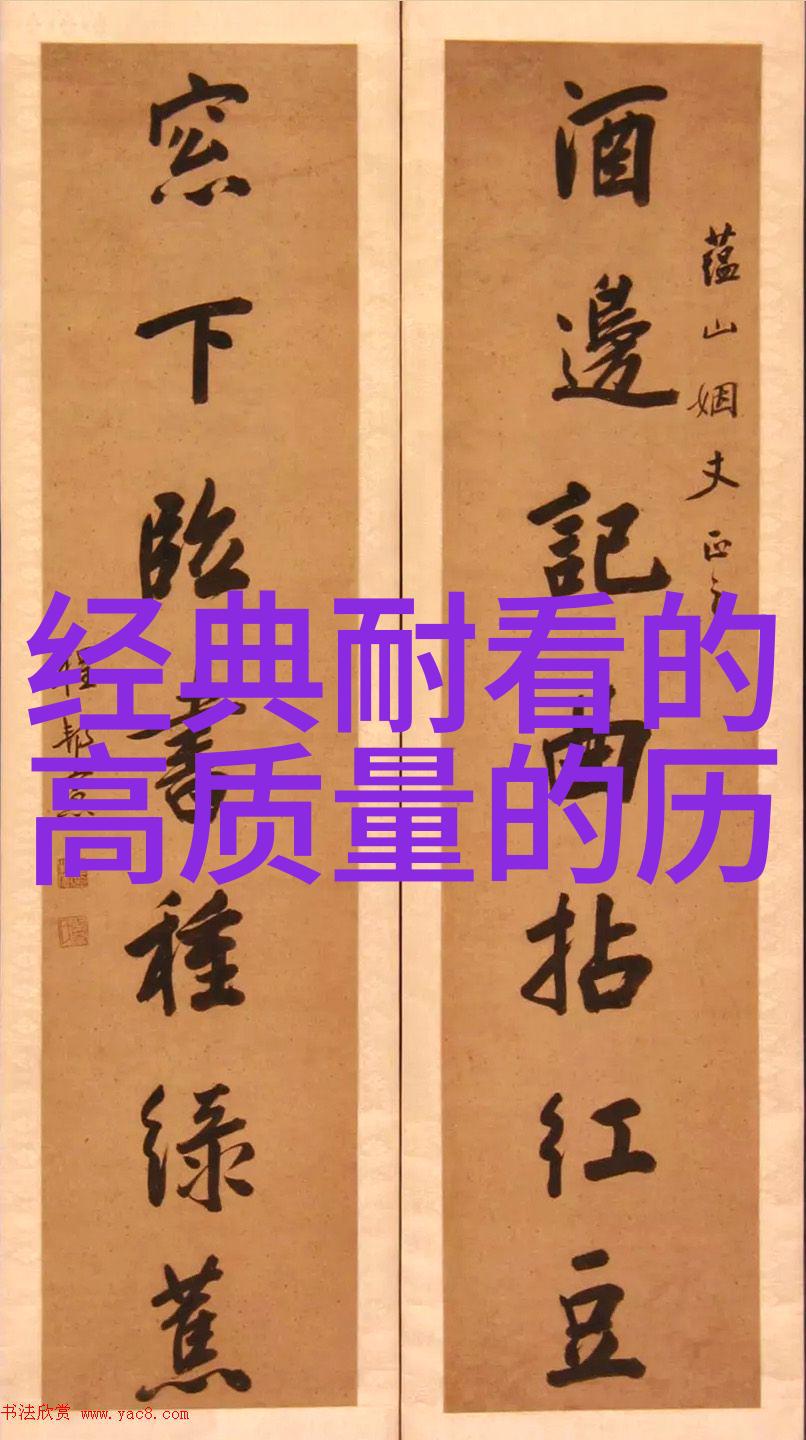 蕴山姻丈正
酒邊記曲拈紅豆
窓下臨書種緑蕉
经典耐看的
高质量的历
书法欣赏 www.yac8.com